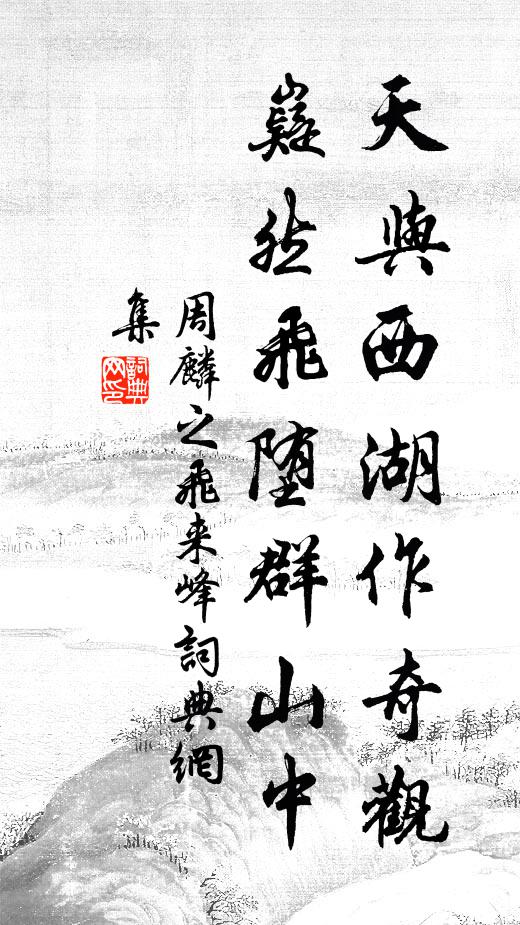 天與西湖作奇觀
嶷然飛堕群山中
周麟之飛来峰詞典網
集
詞典網印